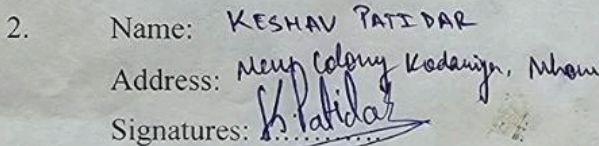 2. Name: KESHAV PATIDAR
Address: Colony Kodariya, Mhow
Signatures: K.Patidar